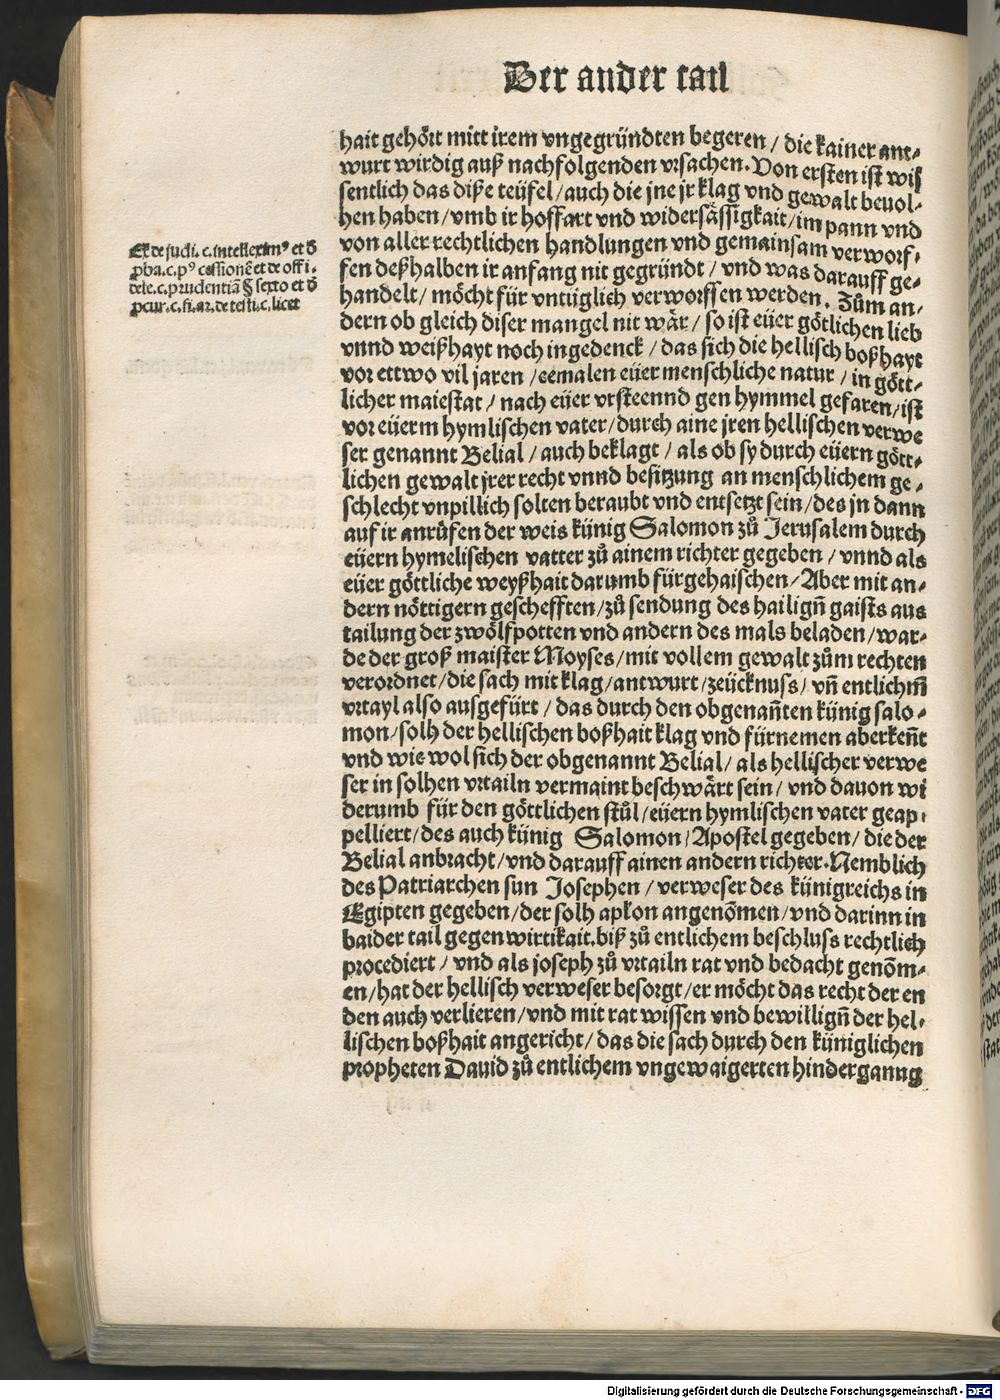 Der ander tail
hait gehört mitt irem vngegründten begeren / die kainer ant⸗
wurt wirdig auß nachfolgenden vrsachen. Von ersten ist wiſ
sentlich das diße teüfel / auch die jne jr klag vnd gewalt beuol⸗
hen haben / vmb ir hoffart vnd widersässigkait / im pann vnd
von aller rechtlichen handlungen vnd gemainsam verworf⸗
fen deßhalben ir anfang nit gegründt / vnd was darauff ge⸗
handelt / möcht für vntüglich verworffen werden. Zům an⸗
dern ob gleich diser mangel nit wär / so ist eüer götlichen lieb
vnnd weißhayt noch ingedenck / das sich die hellisch boßhayt
vor ettwo vil jaren / eemalen eüer menschliche natur / in gött⸗
licher maiestat / nach eüer vrsteennd gen hymmel gefaren / ist
vor eüerm hymlischen vater / durch aine jren hellischen verwe
ser genannt Belial / auch beklagt / als ob sy durch eüern gött⸗
lichen gewalt jrer recht vnnd besitzung an menschlichem ge⸗
schlecht vnpillich solten beraubt vnd entsetzt sein / des jn dann
auf ir anrůfen der weis künig Salomon zů Jerusalem durch
eüern hymelischen vatter zů ainem richter gegeben / vnnd als
eüer göttliche weyßhait darumb fürgehaischen / Aber mit an⸗
dern nöttigern gescheffen / zů sendung des hailigñ gaists aus
tailung der zwölfpotten vnd andern des mals beladen / war⸗
de der groß maister Moyses / mit vollem gewalt zům rechten
verordnet / die sach mit klag / antwurt / zeücknuss / vñ entlichm̃
vrtayl also ausgefürt / das durch den obgenañten künig salo⸗
mon / solh der hellischen boßhait klag vnd fürnemen aberkeñt
vnd wie wol sich der obgenannt Belial / als hellischer verwe
ser in solhen vrtailn vermaint beschwärt sein / vnd dauon wi
derumb für den göttlichen stůl / eüern hymlischen vater geap⸗
pelliert / des auch künig Salomon / Apostel gegeben / die der
Belial anbracht / vnd darauff ainen andern richter. Nemblich
des Patriarchen sun Josephen / verweser des künigreichs in
Egipten gegeben / der solh apłon angenõmen / vnd darinn in
baider tail gegenwirtikait. biß zů entlichem beschluss rechtlich
procediert / vnd als joseph zů vrtailn rat vnd bedacht genõm⸗
en / hat der hellisch verweser besorgt / er möcht das recht der en
den auch verlieren / vnd mit rat wissen vnd bewilligñ der hel⸗
lischen boßhait angericht / das die sach durch den küniglichen
propheten Dauid zů entlichem vngewaigerten hinderganng
Ex de judi. c. intelleximꝰ et đ
ꝓba. c. pꝰ cessionẽ et de offi.
dele. c. prudentiã § sexto et đ
ꝓcur. c. fi. ar. de testi. c. licet
Digitalisierung gefördert durch die Deutsche Forschungsgemeinschaft - DFG